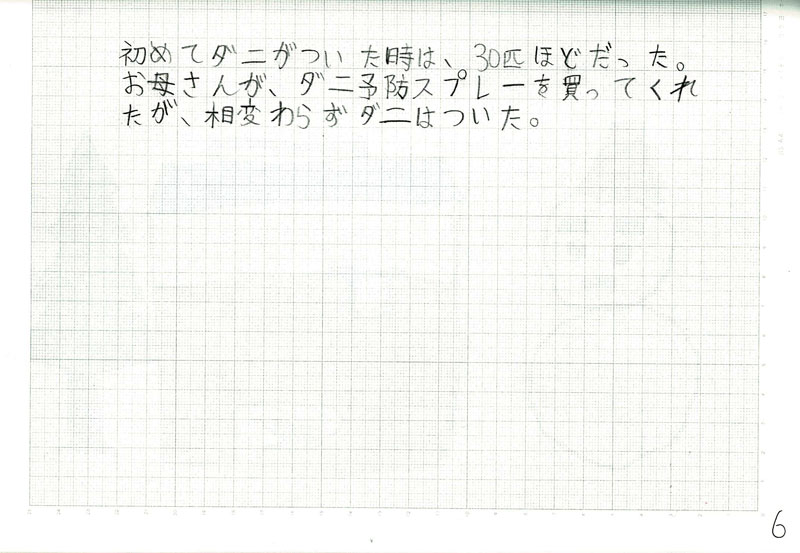 初めてダニがついた時は、30匹ほどだった。
お母さんが、ダニ予防スプレーを買ってくれ
たが、相変わらずダニはついた。
6